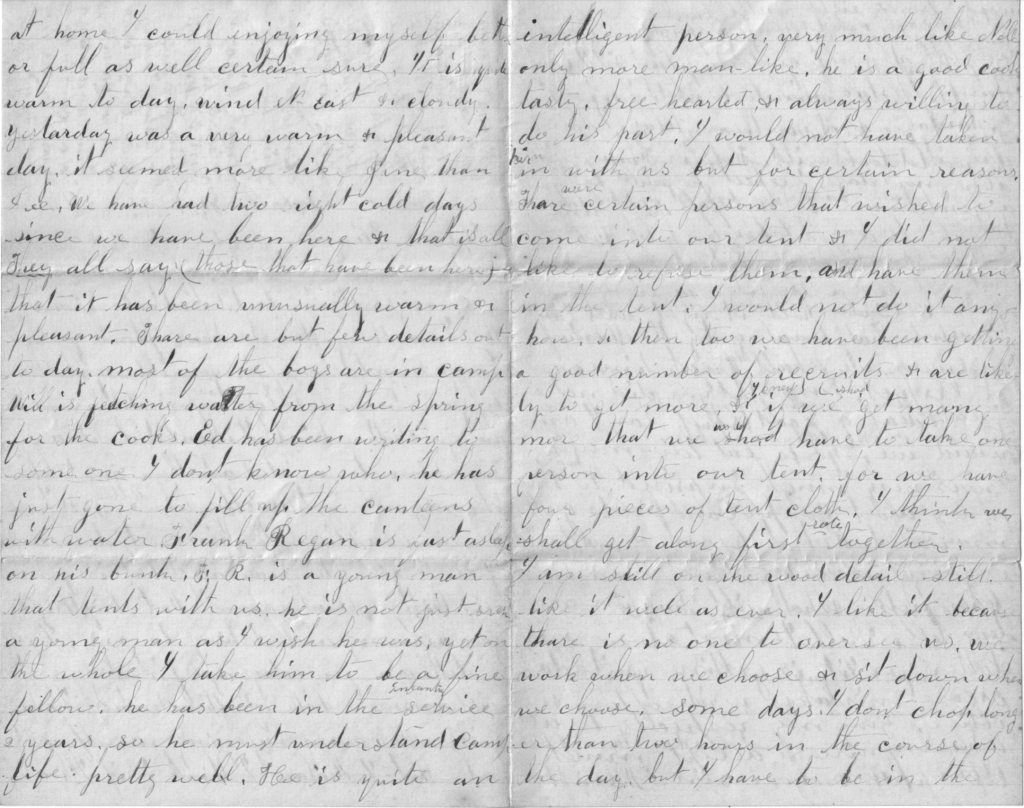 at home I could enjoying myself bet
or full as well certain sure. It is quite
warm to day. wind N east & cloudy.
Yestarday was a very warm & pleasant
day. it seemed more like June than
Dec. We have had two right cold days
since we have been here & that is all
They all say (those that have been here)
that it has been unusually warm &
pleasant. Thare are but few details out
to day. most of the boys are in camp
Will is fetching water from the spring
for the cooks. Ed has been writing to
some one I dont know who. he has
just gone to fill up the canteens
with water Frank Regan is just asleep
on his bunk. F. R. is a young man
that tents with us. he is not just such
a young man as I wish he was, yet on
the whole I take him to be a fine
fellow. he has been in the service
Infantry
2 years. so he must understand camp
life pretty well. He is quite an
intelligent person, very much like
only more man-like. he is a good cook
tasty, free hearted & always willing to
do his part. I would not have taken
him
in with us but for certain reasons.
were
Thare certain persons that wished to
come into our tent & I did not
like to refuse them, and have them
in the tent. I would not do it any
how. & then too we have been getting
a good number of recruits & are like
ly to get more. & if we get many
mor that we should have to take one
person into our tent. for we have
four pieces of tent cloth. I think we
shall get along first rate together.
I am still on the wood detail still.
like it well as ever. I like it because
thare is no one to over see us. we
work when we choose & sit down when
we choose. some days I dont chop long
er than two hours in the course of
the day. but I have to be in the